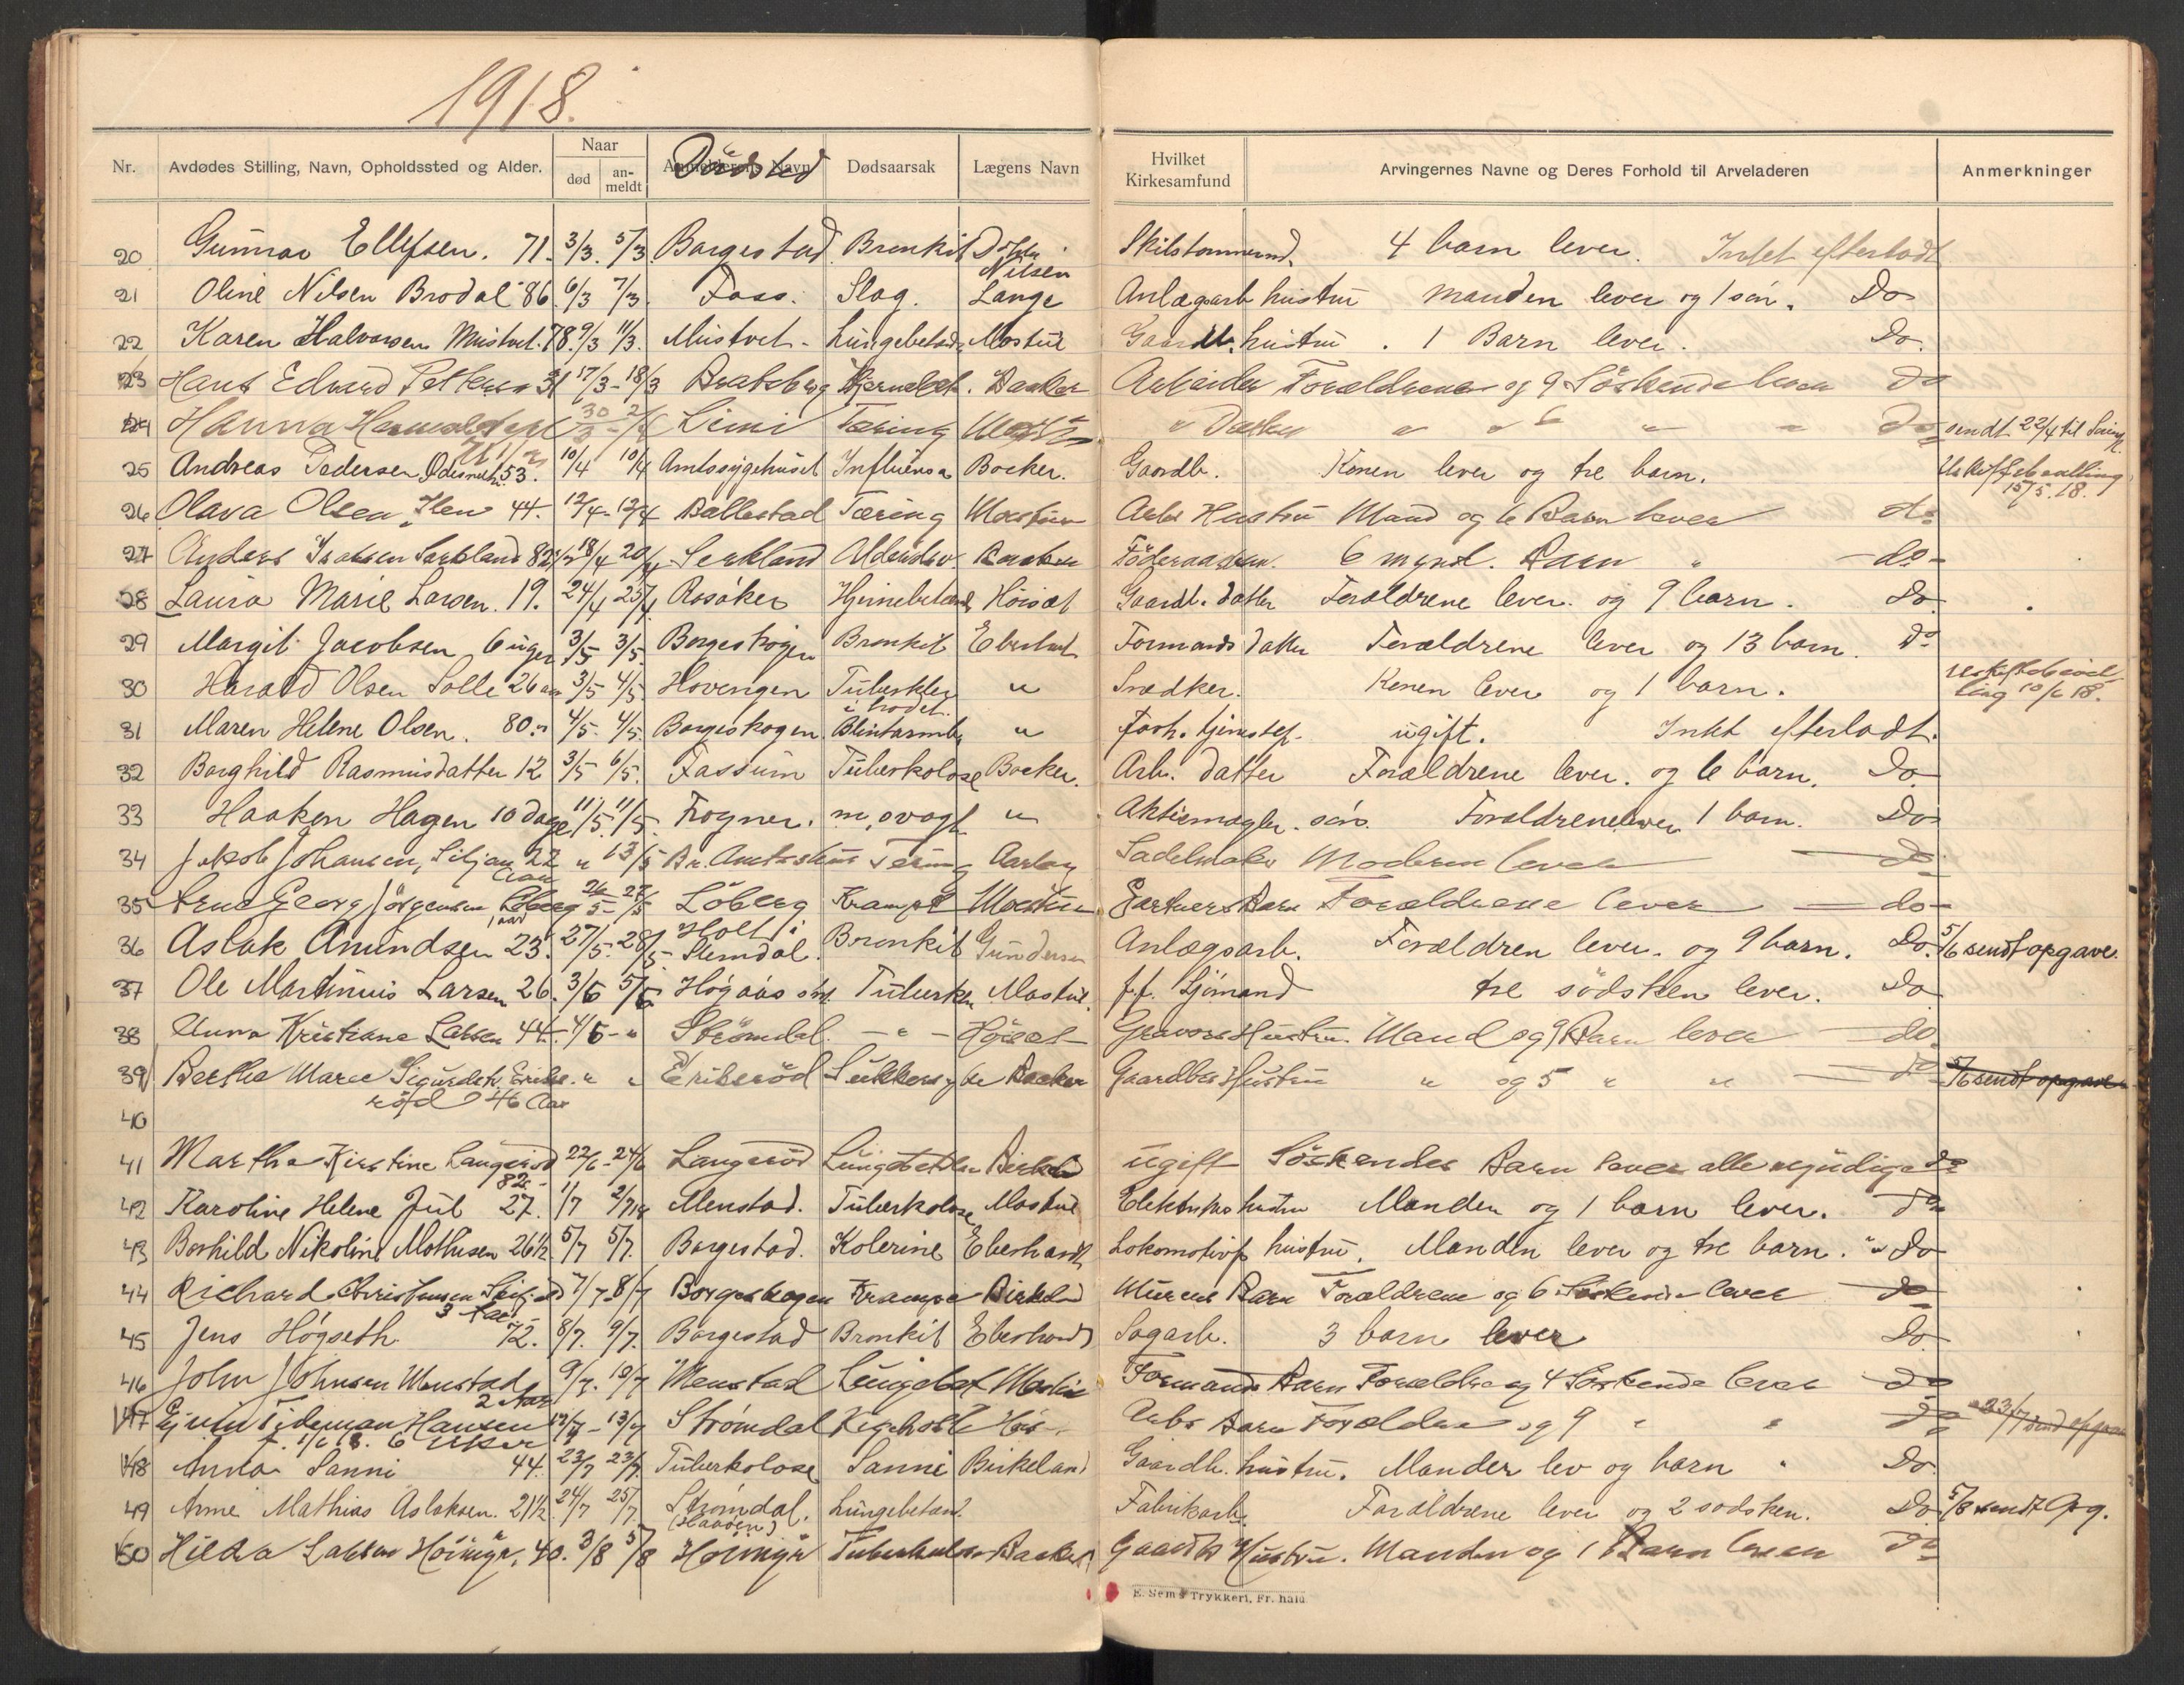 1918.
Nr. Avdødes Stilling, Navn, Opholdssted og Alder. Naar død an-meldt Anmelderens Navn Dödsted Dødsaarsak Lægens Navn Hvilket Kirkesamfund Arvingernes Navne og Deres Forhold til Arveladeren Anmerkninger
20 Gunnar Ellefsen. 71. 3/3. 5/3 Borgestad Bronkit Nilsen 4 barn lever. Intet efterladt
21 Oline Nilsen Brodal 86. 6/3 7/3. Foss. Slag. Lange Anlægsarb hustru manden lever og 1 sön. Do
22 Karen Halvorsen Mustvet. 78. 9/3 11/3. Mustvet Lungebetænd. Mostue Gaardb. hustru. 1 Barn lever. Do.
23 Hans Edvard Pettersen 31 17/3 - 18/3 Bratsberg Backer Arbeider Forældrene og 9 Söskende lever do
24 Hanna Limi Tæring " Datter " " 6 " " do sendt 22/4 til
25 Andreas Pedersen 53. 10/4 10/4 Amtssygehuset Influensa Backer. Gaardb. Konen lever og tre barn. 15/5.18.
26 Olava Olsen, 44. 12/4 - 12/4 Ballestad Tæring Moestue Arbs Hustru Mand og 6 Barn lever do
27 Anders Isaksen Serkland 82 18/4 20/4 Serkland Backer 6 mynd. Barn " do
28 Laura Marie Larsen. 19. 24/4 25/4 Rosåker Hjernebetænd. Höisæt Gaardb. datter Forældrene lever. og 9 barn. do.
29 Margit Jacobsen 6 uger 3/5 3/5. Borgeskogen Bronkit Eberhart Formands datter Forældrene lever og 13 barn. do
30 Harald Olsen Solli 26 aar 3/5 4/5. Hovengen Tuberkler i hodet. " Snedker. Konen lever og 1 barn. 10/6 18.
31 Maren Helene Olsen. 80. 4/5. 4/5. Borgeskogen. " forh. tjenestep. ugift. Intet efterladt.
32 Borghild Rasmusdatter 12 3/5 6/5. Fossum Tuberkolose Backer. Arb. datter Forældrene lever. og 6 barn. Do
33 Haaken Hagen 10 dage 11/5. 11/5. Frogner. " Aktiemægler. sön. Forældrene lever 1 barn. Do
34 Jakob Johansen, Siljan 22 Aar " 13/5 Tæring Sadelmaker Moderen lever do.
35 Arne Georg Jörgensen Löberg 1 aar 26/5 - 27/5 Löberg Krampe Moestue Gartners Barn Forældrene lever do
36 Aslak Anundsen 23. 27/5. 28/5 Holt i Slemdal. Bronkit Gundersen Anlægsarb. Forældren lever. og 9 barn. Do. 5/6 sendt opgave.
37 Ole Martinius Larsen 26. 3/6 5/6 Tuberk. Mostue f.f. Sjömand tre södsken lever. Do
38 Anna Kristiane Larsen 44. 4/6 - " Strömdal. - " - Höisæt Hustru Mand og 9 Barn lever do.
39 Berthe Marie Sigurdsdtr. Eriks-röd 46 Aar " " Eriksröd Sukkersyke Backer Gaardbrs Hustru " og 5 " " do 5/6 sendt opgave
40
41 Marthe Kirstine Langeröd 82. 22/6 - 24/6 Langeröd Birkeland ugift Söskendes Barn lever alle myndige do
42 Karoline Helene Juil 27. 1/7 2/7 18 Menstad. Tuberkolose Mostue hustru Manden og 1 barn lever. do
43 Borhild Nikoline Mathisen 26½ 5/7 5/7. Borgestad. Kolerine Eberhardt Lokomotivf. hustru. Manden lever og tre barn. " do
44 Richard Christensen 3 Aar 7/7 - 8/7 Borgeskogen Krampe Birkeland Murers Barn Forældrene og 6 Söskende lever do
45 Jens Högseth 72. 8/7. 9/7. Borgestad Bronkit Eberhard Sagarb. 3 barn lever Do
46 John Johnsen Menstad 2 Aar 9/7. 10/7 Menstad Lungebet. Formands Barn Forældre og 4 Söskende lever do
47 Tideman Hansen f. 1/6 18. 6 Uker 12/7 - 13/7 Strömdal Kighoste Höis. Arbs Barn Forældre og 9 " " do 23/7 sendt opgave
48 Anna Sanni 44. 23/7 23/7. Tuberkolose Sanni Birkeland Gaardb. hustru. Manden lev og barn " Do.
49 Arne Mathias Aslaksen. 21½. 24/7 25/7. Strömdal. Lungebetænd. Fabrikarb. Forældrene lever og 2 södsken. Do 5/8 sendt Opg.
50 Hilda Larsen 40. 3/8 5/8 Tuberkulose Backer Gaardbr Hustru. Manden og 1 Barn lever do
E. Sems Trykkeri, Fr.hald